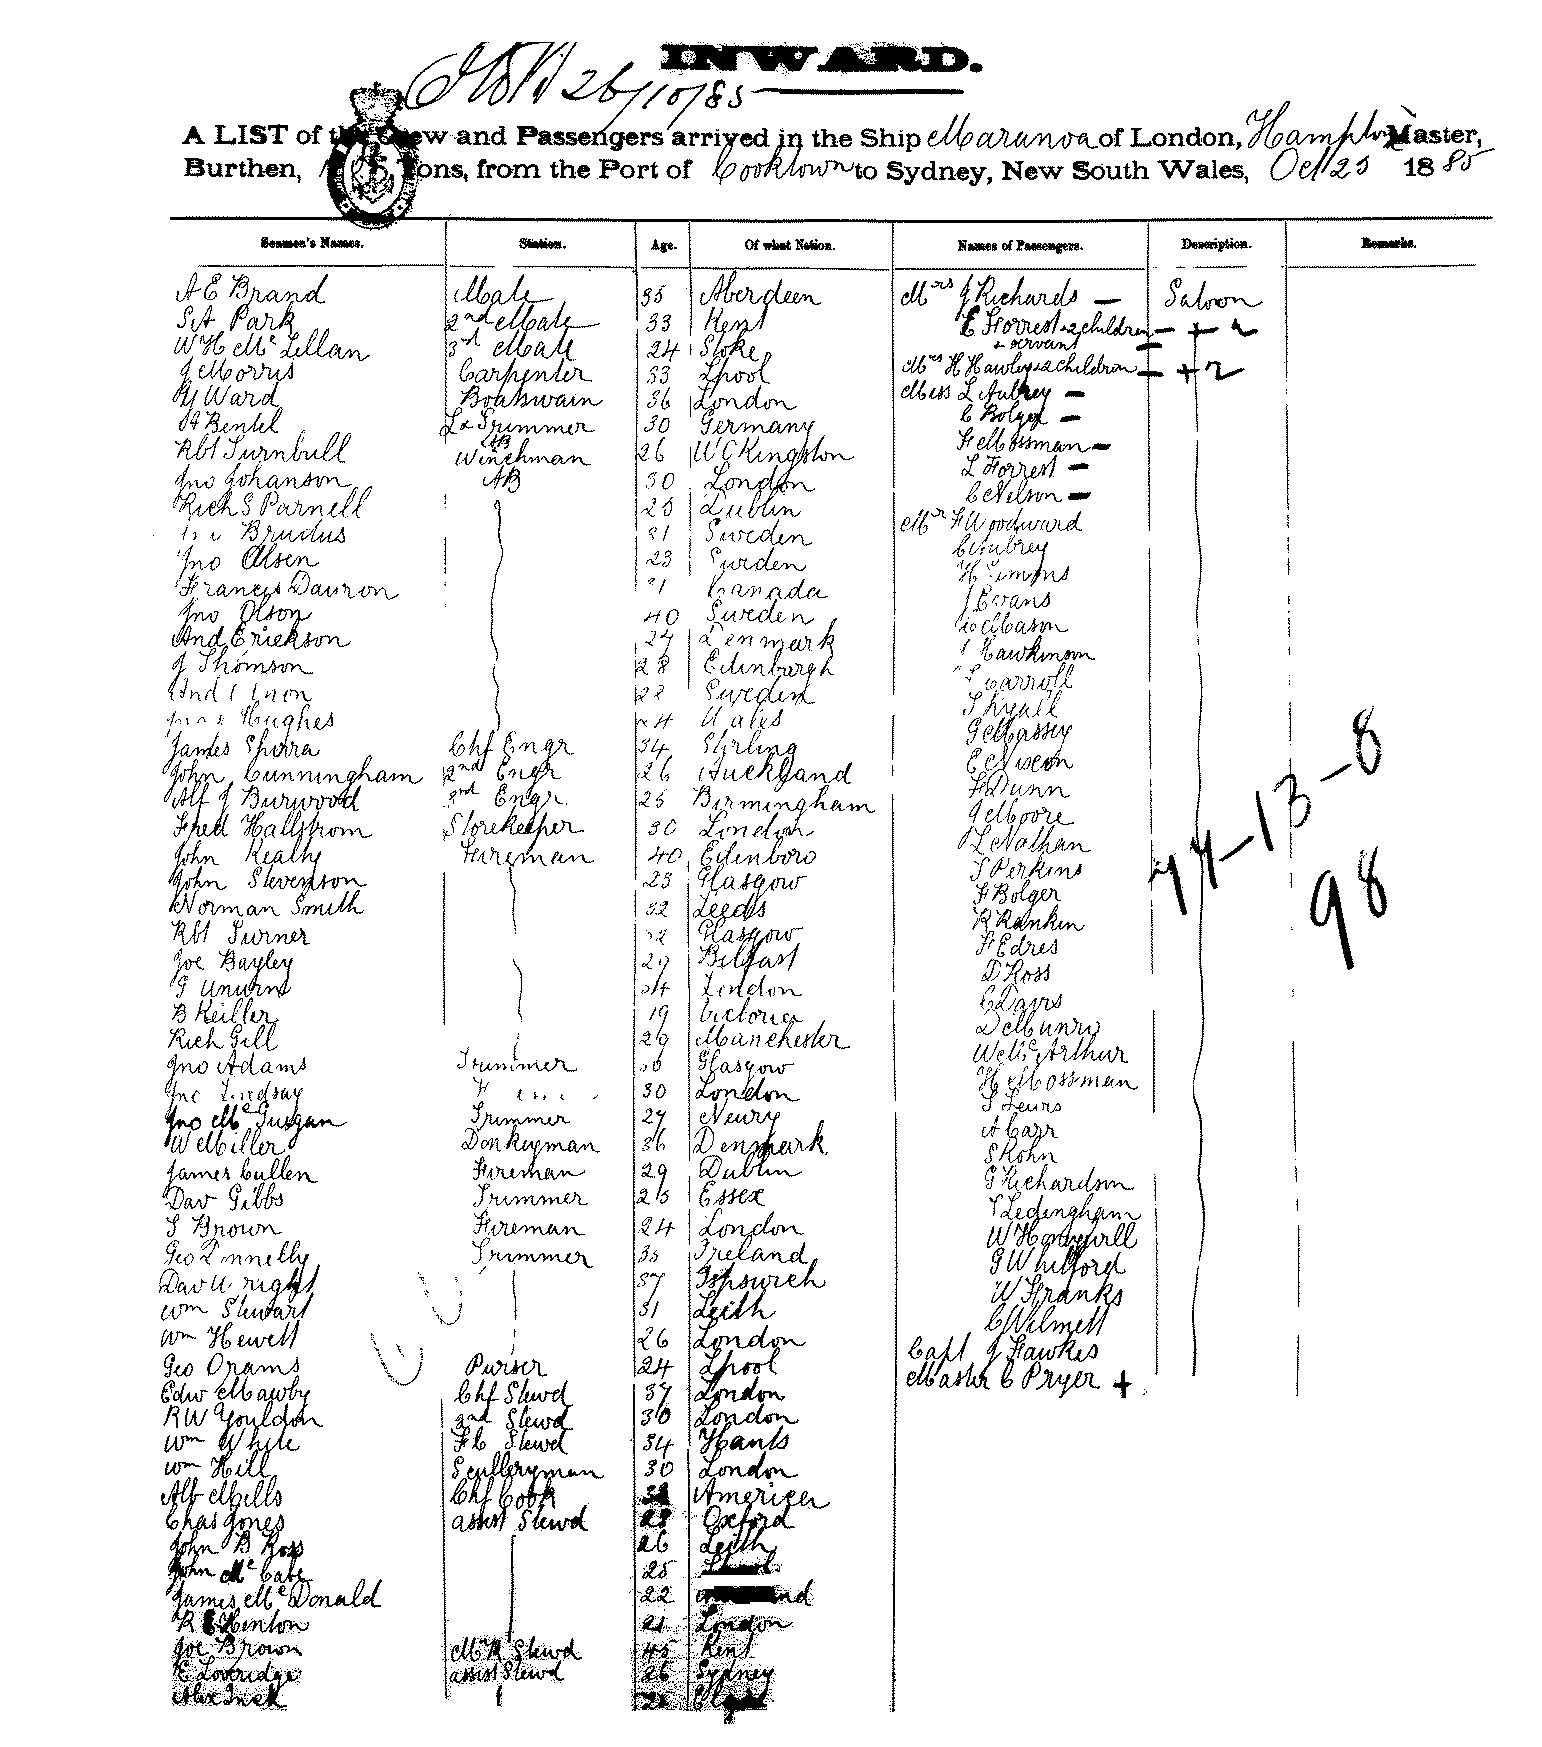 INWARD.
26/10/85
A LIST of the Crew and Passengers arrived in the Ship Maranoa of London, Hampton Master,
Burthen, Tons, from the Port of Cooktown to Sydney, New South Wales, Oct 25 1885
Seamen's Names. Station. Age. Of what Nation. Names of Passengers. Description. Remarks.
A E Brand Mate 35 Aberdeen Mrs J Richards — Saloon
S A Park 2nd Mate 33 Kent E Forrest + 2 children — + 2
+ servant —
W H McLellan 3rd Mate 24 Stoke
J Morris Carpenter 33 Lpool Mrs H Hawley + 2 children — + 2
H Ward Boatswain 36 London Miss L Aubrey —
H Bentel Lp Trimmer 30 Germany C Bolger —
Rbt Turnbull AB Winchman 26 W C Kingston F Mossman —
Jno Johanson AB 30 London L Forrest —
Rich S Parnell 25 Dublin C Nelson —
Brudus 21 Sweden Mr F Woodward
Jno Olsen 23 Sweden C Aubrey
Francis Dauron 21 Canada H Simons
Jno Olson 40 Sweden J Evans
And Erickson 27 Denmark Mason
J Thomson 28 Edinburgh Hawkinson
And 28 Sweden Carroll
Hughes 24 Wales T Lyall
James Spurra Chf Engr 34 Stirling G Massey
John Cunningham 2nd Engr 26 Auckland E Nixon
Alf J Burwood 3rd Engr 25 Birmingham F Dunn
Fred Hallstrom Storekeeper 30 London J Moore
John Kealty Fireman 40 Edinboro L Nathan
John Stevenson 23 Glasgow S Perkins
Norman Smith 32 Leeds F Bolger
Rbt Turner 32 Glasgow R Rankin
Joe Bayley 29 Belfast F Edres
G 34 London D Ross
B Keiller 19 Victoria C Davis
Rich Gill 29 Manchester D Munro
Jno Adams Trimmer 36 Glasgow W McArthur
Jno Lindsay 30 London H Mossman
Jno Mc Trimmer 27 Newry S Lewis
W Miller Donkeyman 36 Denmark A Carr
James Cullen Fireman 29 Dublin S Kohn
Dav Gibbs Trimmer 25 Essex G Richardson
S Brown Fireman 24 London T Ledingham
Geo Dnnelly Trimmer 35 Ireland W Honeywill
Dav Wright 37 Ipswich G Whitford
Wm Stewart 31 Leith W Franks
Wm Hewett 26 London C Wilmett
Geo Orams Purser 24 Lpool Capt J Fawkes
Edw Mawby Chf Stewd 37 London Master C Pryer +
R W Youldon 2nd Stewd 30 London
Wm White F C Stewd 34 Hants
Wm Hill Sculleryman 30 London
Alf Mills Chf Cook 32 America
Chas Jones assist Stewd 28 Oxford
John B Ross 26 Leith
John McCabe 25
James McDonald 22
R Hinton 21 London
Joe Brown Mr R Stewd 45 Kent
E Loveridge assist Stewd 26 Sydney
Alex
77—13—8
98